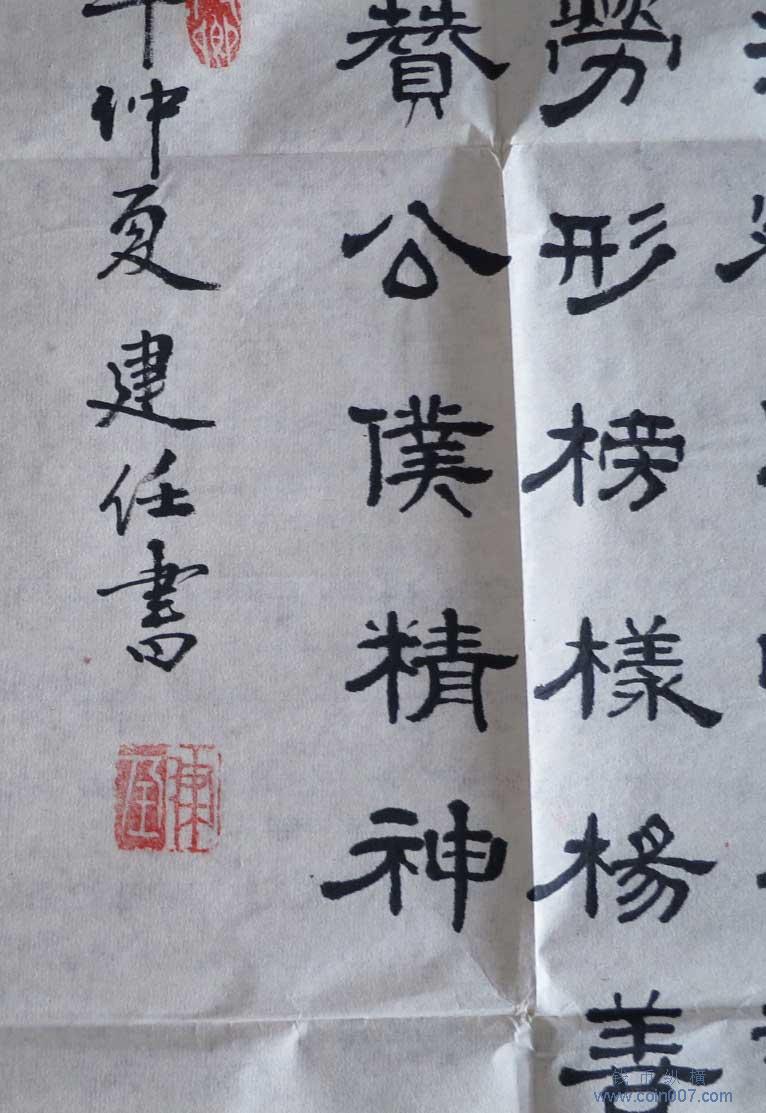 勞形榜樣楊善
贊公僕精神
仲夏建任書
钱币纵横
www.coin007.com